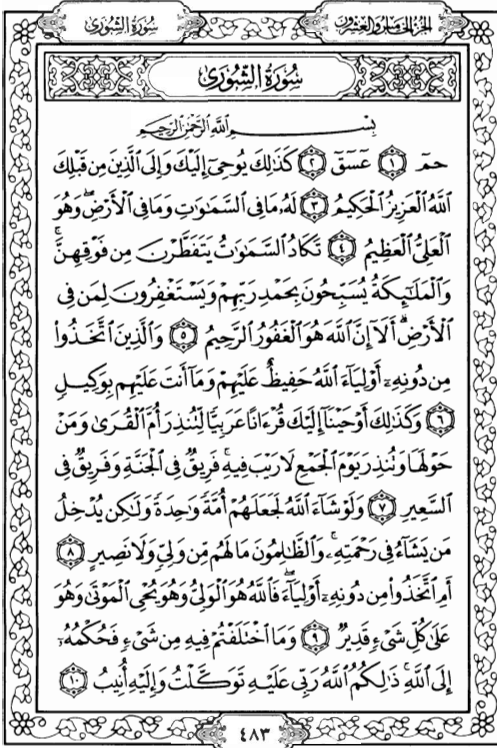 الجزء الخامس والعشرون
سورة الشورى
سُورَةُ الشُّورَىٰ
بِسْمِ اللَّهِ الرَّحْمَٰنِ الرَّحِيمِ
حمٓ ١ عٓسٓقٓ ٢ كَذَٰلِكَ يُوحِيٓ إِلَيۡكَ وَإِلَى ٱلَّذِينَ مِن قَبۡلِكَ
ٱللَّهُ ٱلۡعَزِيزُ ٱلۡحَكِيمُ ٣ لَهُۥ مَا فِي ٱلسَّمَٰوَٰتِ وَمَا فِي ٱلۡأَرۡضِۖ وَهُوَ
ٱلۡعَلِيُّ ٱلۡعَظِيمُ ٤ تَكَادُ ٱلسَّمَٰوَٰتُ يَتَفَطَّرۡنَ مِن فَوۡقِهِنَّۚ
وَٱلۡمَلَٰٓئِكَةُ يُسَبِّحُونَ بِحَمۡدِ رَبِّهِمۡ وَيَسۡتَغۡفِرُونَ لِمَن فِي
ٱلۡأَرۡضِۗ أَلَآ إِنَّ ٱللَّهَ هُوَ ٱلۡغَفُورُ ٱلرَّحِيمُ ٥ وَٱلَّذِينَ ٱتَّخَذُواْ
مِن دُونِهِۦٓ أَوۡلِيَآءَ ٱللَّهُ حَفِيظٌ عَلَيۡهِمۡ وَمَآ أَنتَ عَلَيۡهِم بِوَكِيلٖ
٦ وَكَذَٰلِكَ أَوۡحَيۡنَآ إِلَيۡكَ قُرۡءَانًا عَرَبِيّٗا لِّتُنذِرَ أُمَّ ٱلۡقُرَىٰ وَمَنۡ
حَوۡلَهَا وَتُنذِرَ يَوۡمَ ٱلۡجَمۡعِ لَا رَيۡبَ فِيهِۚ فَرِيقٞ فِي ٱلۡجَنَّةِ وَفَرِيقٞ فِي
ٱلسَّعِيرِ ٧ وَلَوۡ شَآءَ ٱللَّهُ لَجَعَلَهُمۡ أُمَّةٗ وَٰحِدَةٗ وَلَٰكِن يُدۡخِلُ
مَن يَشَآءُ فِي رَحۡمَتِهِۦۚ وَٱلظَّٰلِمُونَ مَا لَهُم مِّن وَلِيّٖ وَلَا نَصِيرٍ ٨
أَمِ ٱتَّخَذُواْ مِن دُونِهِۦٓ أَوۡلِيَآءَۖ فَٱللَّهُ هُوَ ٱلۡوَلِيُّ وَهُوَ يُحۡيِ ٱلۡمَوۡتَىٰ وَهُوَ
عَلَىٰ كُلِّ شَيۡءٖ قَدِيرٞ ٩ وَمَا ٱخۡتَلَفۡتُمۡ فِيهِ مِن شَيۡءٖ فَحُكۡمُهُۥٓ
إِلَى ٱللَّهِۚ ذَٰلِكُمُ ٱللَّهُ رَبِّي عَلَيۡهِ تَوَكَّلۡتُ وَإِلَيۡهِ أُنِيبُ ١٠
٤٨٣